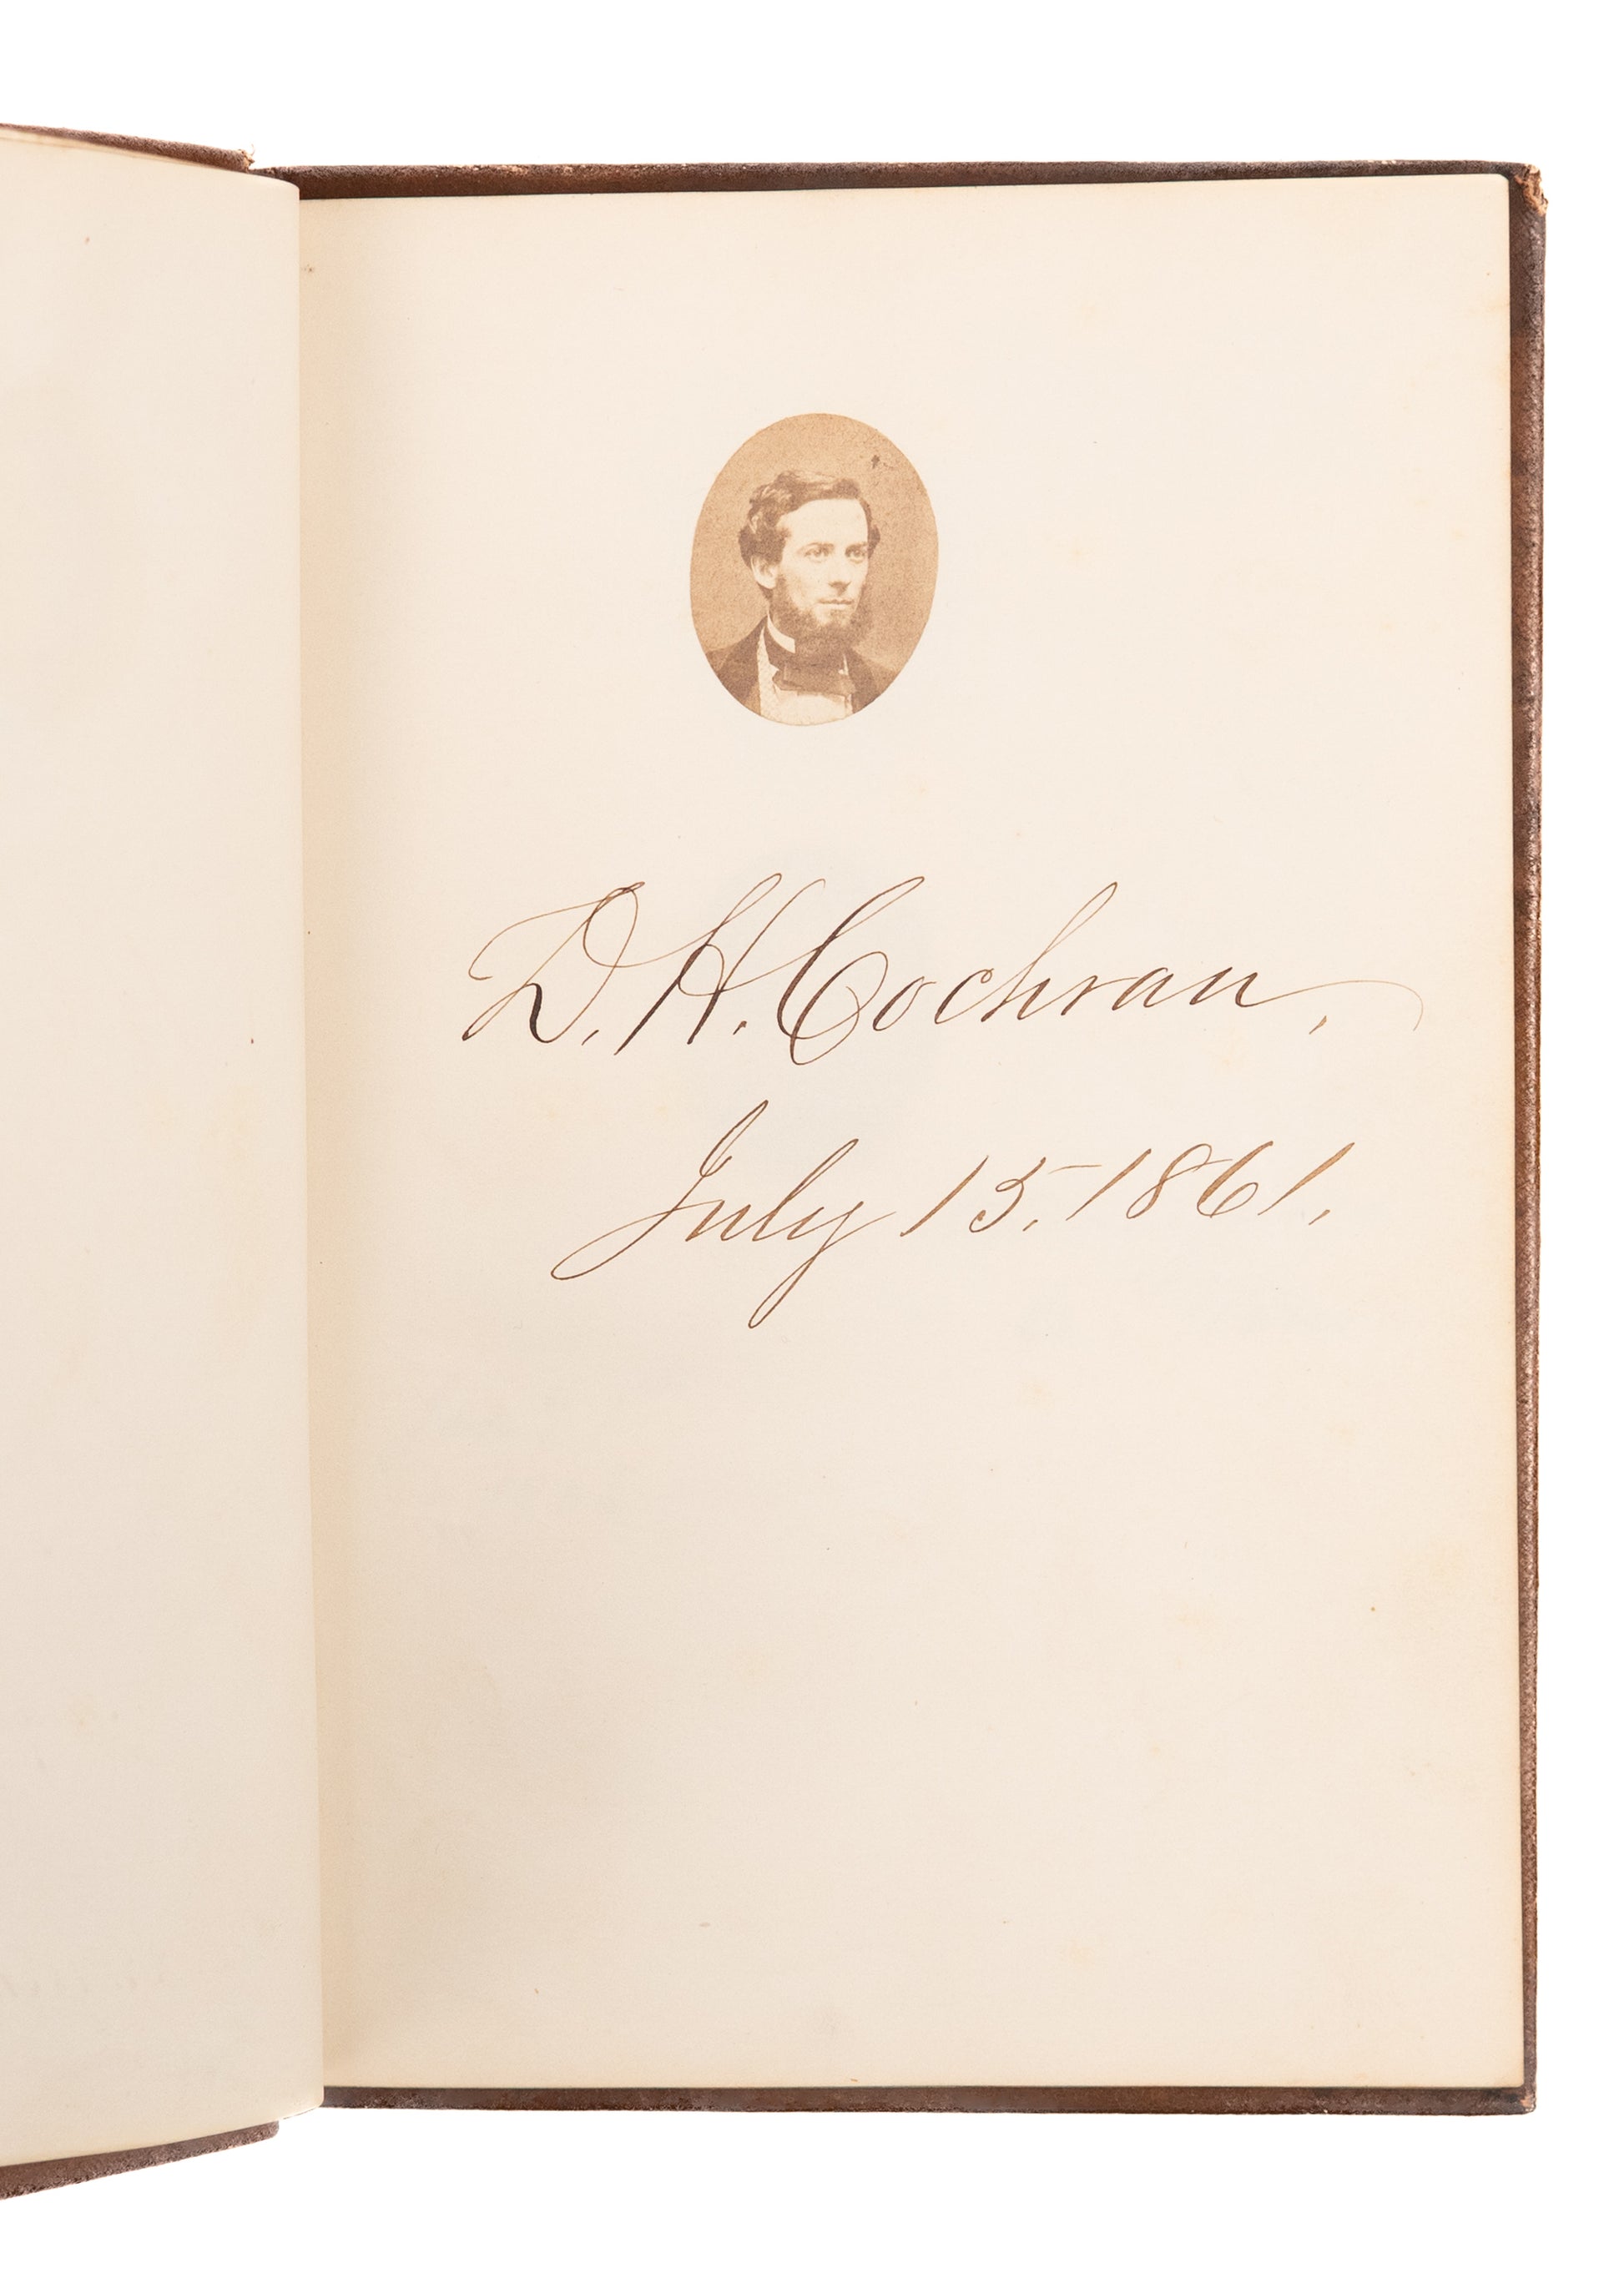 D. H. Cochran,
July 15, 1861,